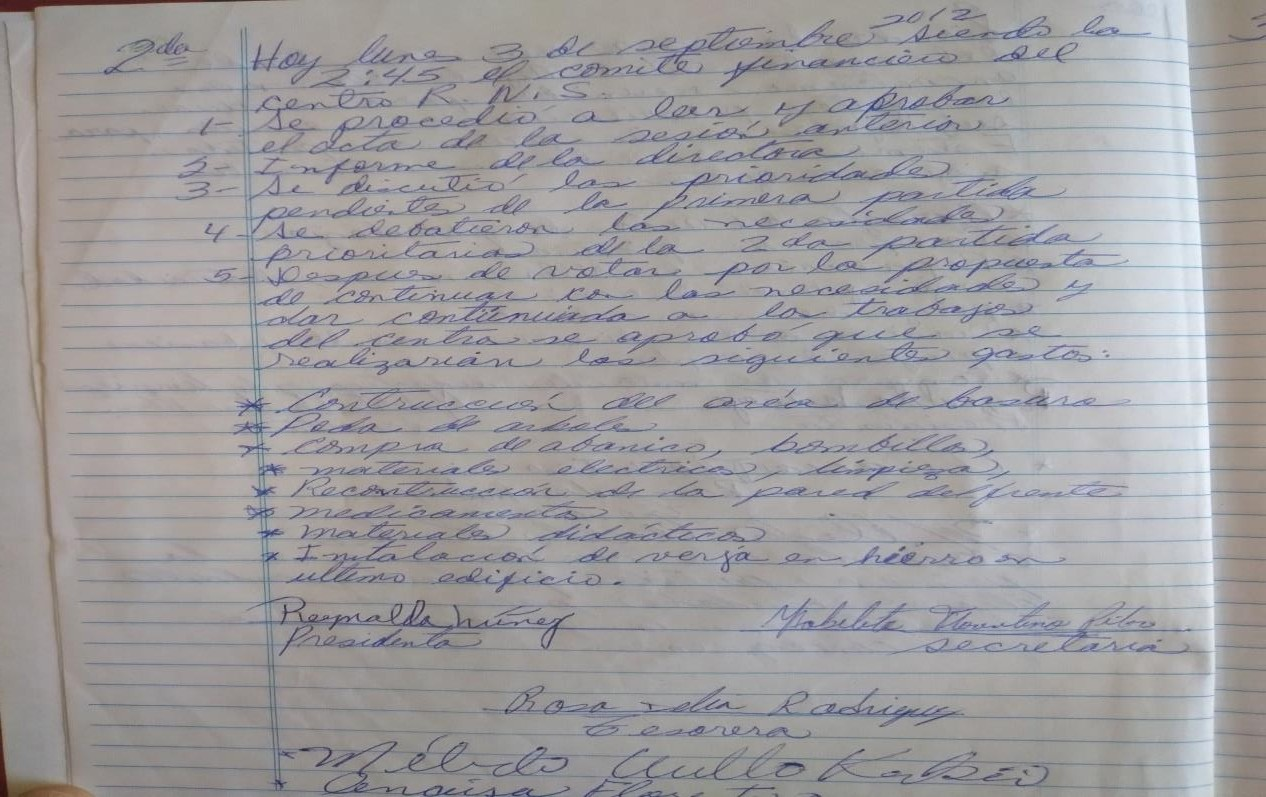 2012
2da Hoy lunes 3 de septiembre siendo las
2:45 el comite financiero del
centro R. N. S.
1- Se procedió a leer y aprobar
el acta de la sesión anterior
2- Informe de la directora
3- Se discutió las prioridades
pendientes de la primera partida
4- Se debatieron las necesidades
prioritarias de la 2da partida
5- Despues de votar por la propuesta
de continuar con las necesidades y
dar continuidada a los trabajos
del centro se aprobó que se
realizarián los siguientes gastos:
* Contrucción del aréa de basura
* Poda de arboles
* Compra de abanico, bombillos,
* materiales electricos, limpieza,
* Recontrucción de la pared del frente
* medicamentos
* materiales didácticos
* Intalación de verja en hierro en
ultimo edificio.
Reynalda Núñez
Presidenta
Florentino
secretaria
Rosa Rodriguez
Tesorera